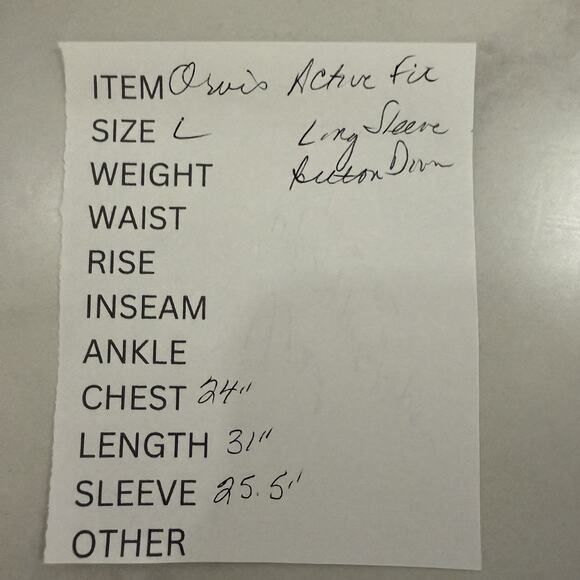 ITEM Orvis Active Fit
SIZE L Long Sleeve
WEIGHT Button Down
WAIST
RISE
INSEAM
ANKLE
CHEST 24"
LENGTH 31"
SLEEVE 25.5"
OTHER